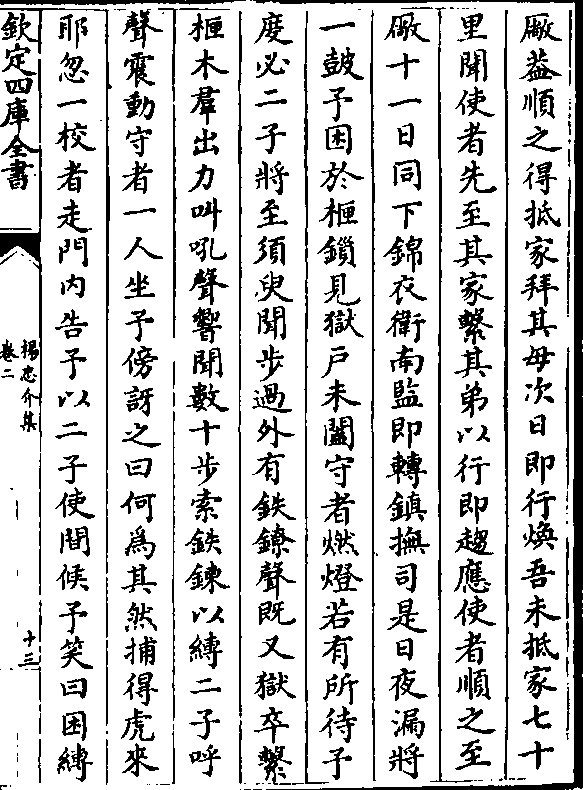 厰葢順之得抵家拜其母次日即行煥吾未抵家七十
里聞使者先至其家繫其弟以行即趨應使者順之至
厰十一日同下錦衣衛南監即轉鎮撫司是日夜漏將
一鼓予困於柙鎖見獄戸未闔守者燃燈若有所待予
度必二子將至須臾聞步過外有鉄鐐聲既又獄卒繫
柙木羣出力叫吼聲響聞數十步索鉄鍊以縛二子呼
聲震動守者一人坐予傍訝之曰何為其然捕得虎來
耶忽一校者走門内告予以二子使問候予笑曰困縛
欽定四庫全書
楊忠介集
卷二
十三